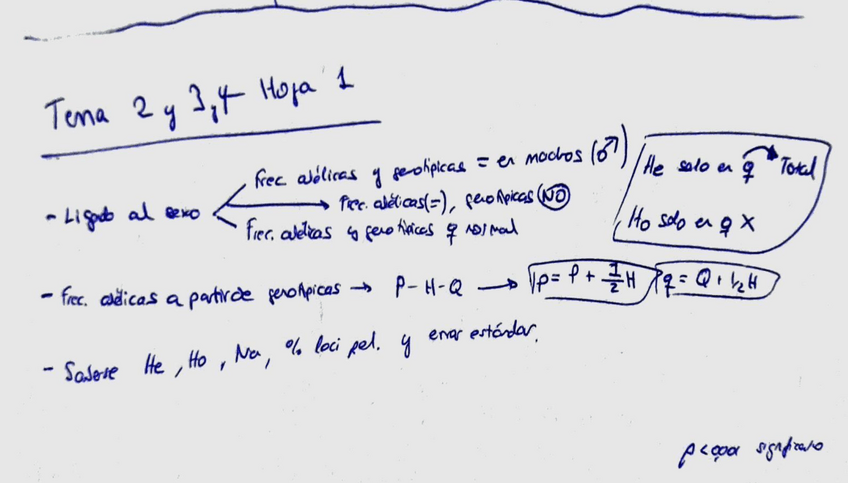 Tema 2 y 3,4 Hoja 1
- Ligado al sexo
Frec. alélicas y genotípicas = en machos (♂)
Frec. alélicas (=), genotípicas (NO)
Frec. alélicas y genotípicas ♀ normal
He solo en ♀ → Total
Ho solo en ♀ X
- Frec. alélicas a partir de genotípicas → P-H-Q → p = P + 1/2 H q = Q + 1/2 H
- Saberse He, Ho, Na, % loci pol. y error estándar.
p < significativo